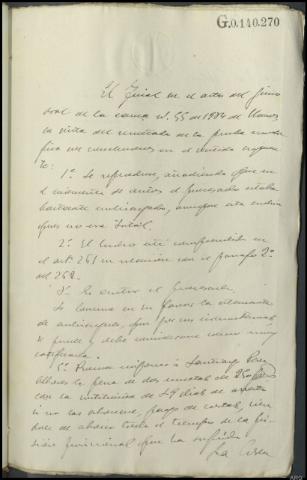 G.0.140.270
El Fiscal en el acto del juicio
oral de la causa nº 55 de 1914 de Llanes
en vista del resultado de la prueba modi
fica sus conclusiones en el sentido siguien
te:
1ª Se reproduce, añadiendo que en
el momento de autos el procesado estaba
bastante embriagado, aunque esta embria
guez no era total.
2ª El hecho está comprendido en
el artº 261 en relación con el párrafo 2º
del 262.
3ª Es autor el procesado.
la de
de embriaguez, que por sus circunstancias
se puede y debe considerarse como muy
calificada.
5ª Procede imponer a Santiago Pérez
la pena de dos multas de
con la sustitución de 29 días de arresto
si no las abonare, pago de costas, sien
dole de abono todo el tiempo de la pri
sión provisional que ha sufrido.
La